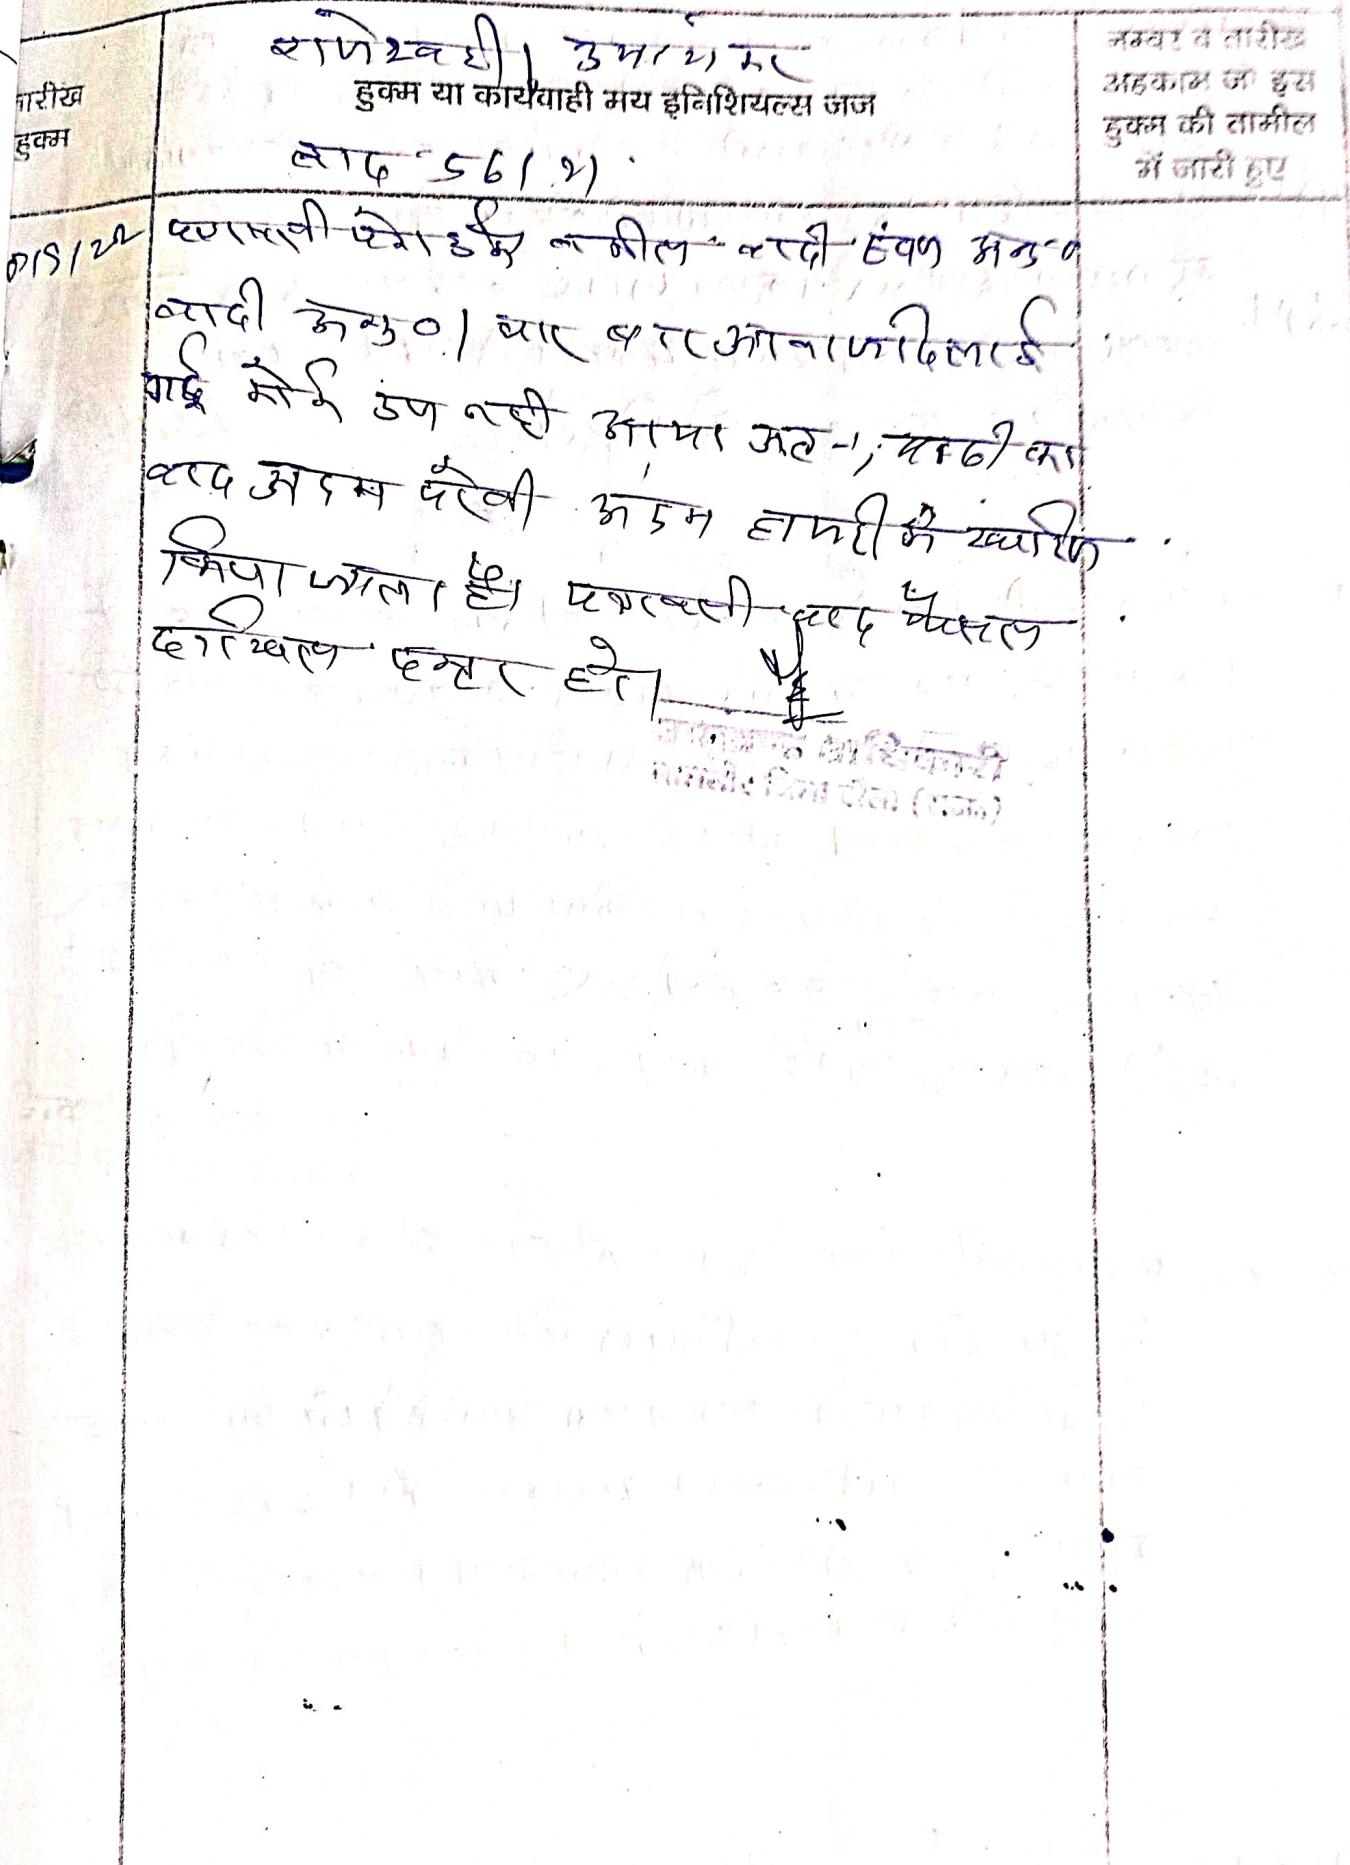 राजेश्वरी / उमाशंकर
तारीख
हुक्म
हुक्म या कार्यवाही मय इनिशियल्स जज
नम्बर व तारीख
अहकाम जो इस
हुक्म की तामील
में जारी हुए
वाद 56/21
पत्रावली पेश हुई वकील वादी एवं अनु०
वादी अनु० । बार बार आवाज दिलाई
गई कोई उप नही आया अतः वादी का
वाद अदम पैरवी अदम हाजरी मे खारिज
किया जाता है। पत्रावली बाद फैसल
दाखिल दफ्तर हो।
अधिकारी
जिला दौसा (राज०)